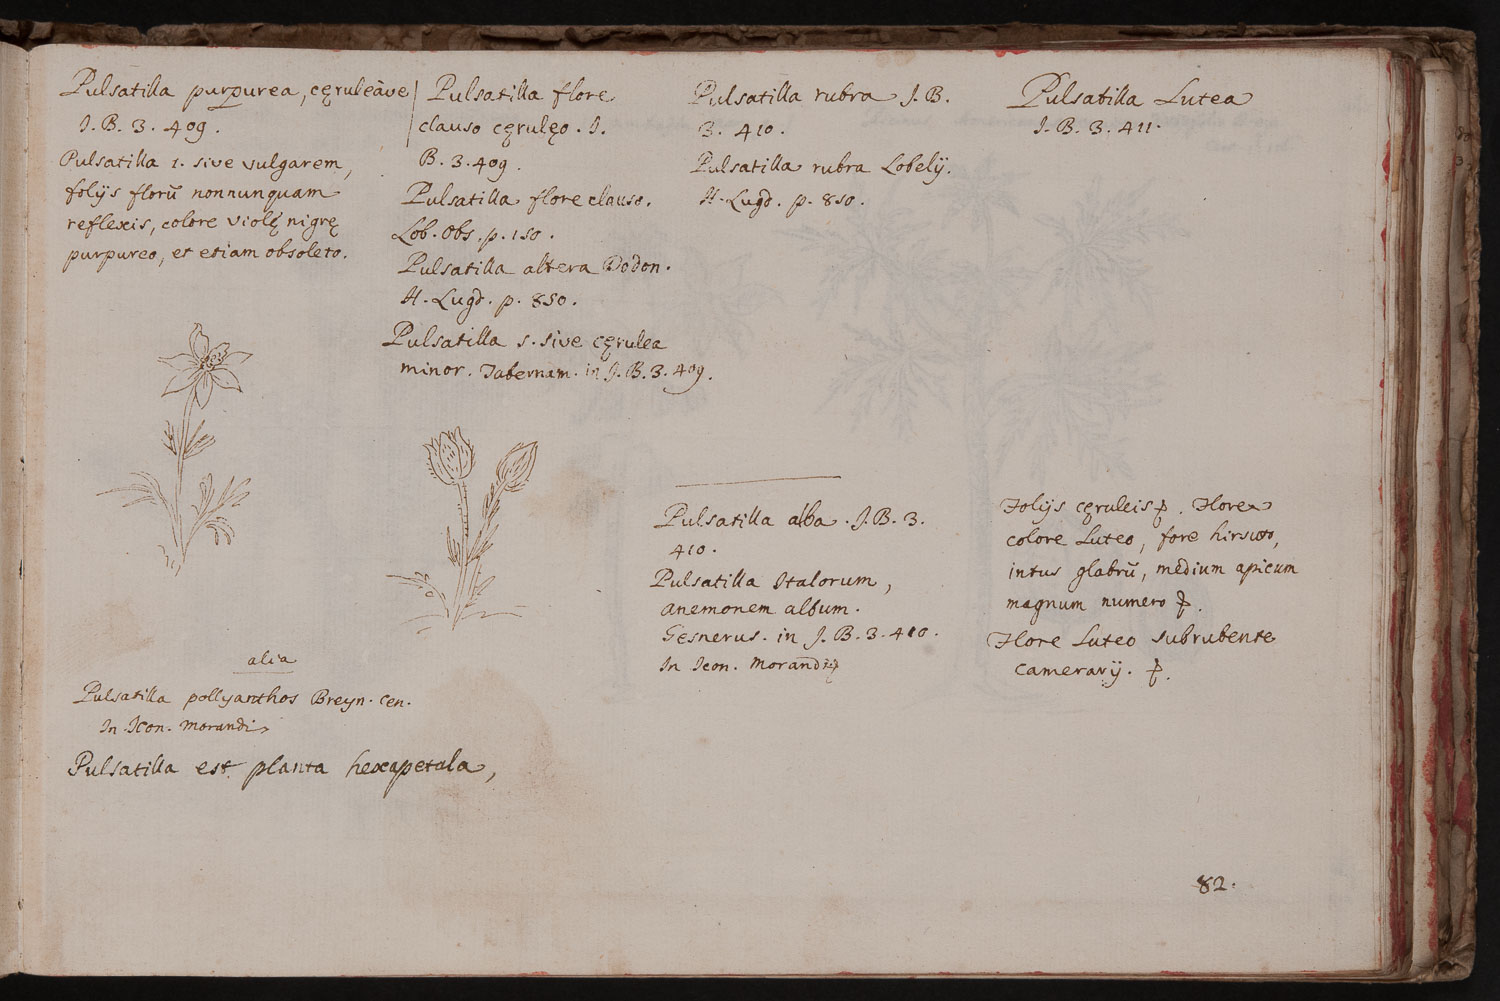 Pulsatilla purpurea, cęruleâve
J. B. 3. 409.
Pulsatilla 1. sive vulgarem,
folijs florũ nonnunquam
reflexis, colore violę nigrę
purpureo, et etiam obsoleto.
Pulsatilla flore
clauso cęrulęo. J.
B. 3. 409.
Pulsatilla flore clauso.
Lob. Obs. p. 150.
Pulsatilla altera Dodon.
H. Lugd. p. 850.
Pulsatilla 5. sive cęrulea
minor. Tabernam. in J. B. 3. 409.
Pulsatilla rubra J. B.
3. 410.
Pulsatilla rubra Lobelij.
H. Lugd. p. 850.
Pulsatilla Lutea
J. B. 3. 411.
Pulsatilla alba. J. B. 3.
410.
Pulsatilla Italorum,
anemonem album.
Gesnerus. in J. B. 3. 410.
In Icon. Morandi
Folijs cęruleis. Flore
colore Luteo, fore hirsuto,
intus glabrũ, medium apicum
magnum numero
Flore Luteo subrubente
camerarij.
alia
Pulsatilla pollyanthos Breyn. cen.
In. Icon. Morandi
Pulsatilla est planta hexapetala,
82.